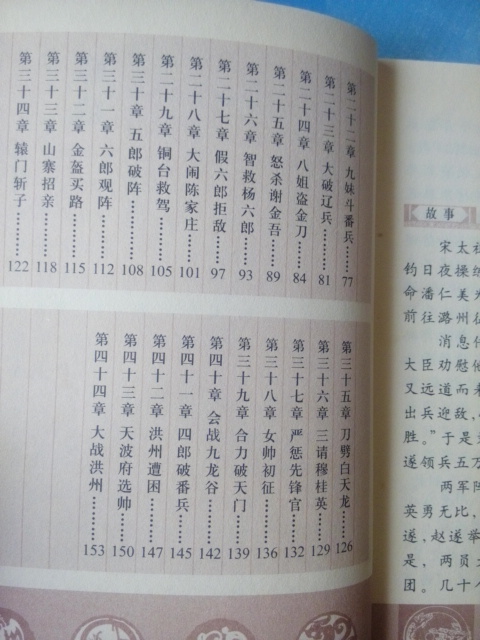 第二十二章 九妹斗番兵……77
第二十三章 大破辽兵……81
第二十四章 八姐盗金刀……84
第二十五章 怒杀谢金吾……89
第二十六章 智救杨六郎……93
第二十七章 假六郎拒敌……97
第二十八章 大闹陈家庄……101
第二十九章 铜台救驾……105
第三十章 五郎破阵……108
第三十一章 六郎观阵……112
第三十二章 金盔买路……115
第三十三章 山寨招亲……118
第三十四章 辕门斩子……122
第三十五章 刀劈白天龙……126
第三十六章 三请穆桂英……129
第三十七章 严惩先锋官……132
第三十八章 女帅初征……136
第三十九章 合力破天门……139
第四十章 会战九龙谷……142
第四十一章 四郎破番兵……145
第四十二章 洪州遭困……147
第四十三章 天波府选帅……150
第四十四章 大战洪州……153
故事
宋太
钓日夜操练
命潘仁美为
前往潞州征
消息传
大臣劝慰他
又远道而来
出兵迎敌,
胜。”于是
遂领兵五万
两军阵
英勇无比,
遂,赵遂举
是,两员大
团。几十个